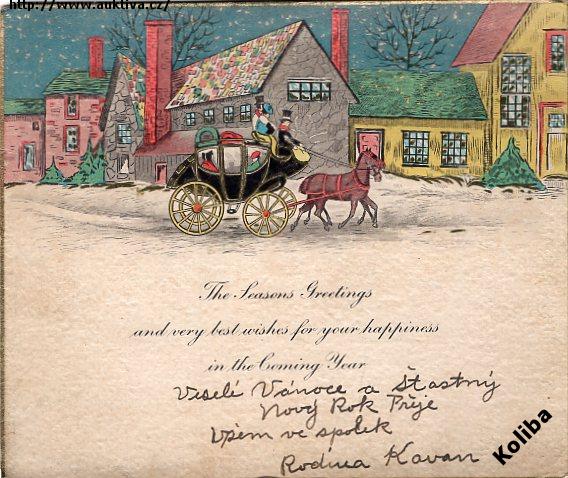 http://www.auktiva.cz/
The Seasons Greetings
and very best wishes for your happiness
in the Coming Year
Veselé Vánoce a Štastný
Nový Rok Přeje
Všem ve spolek
Rodina Kavan
Koliba